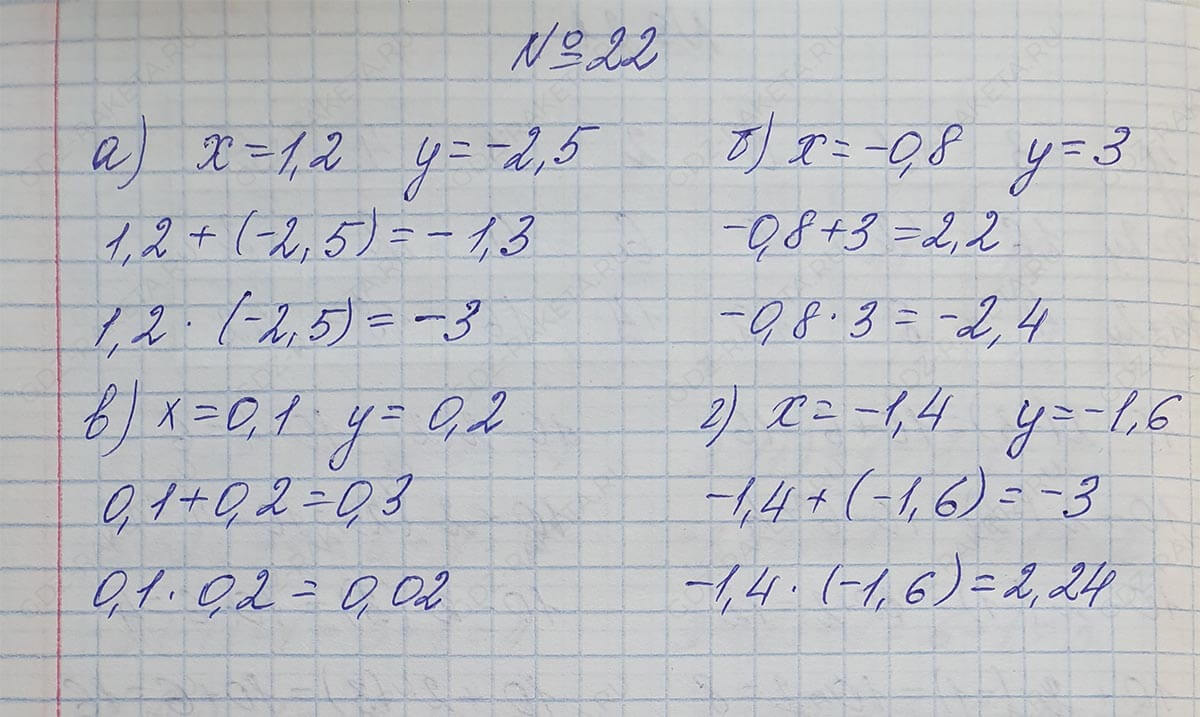 № 22
а) x = 1,2 y = -2,5
1,2 + (-2,5) = -1,3
1,2 · (-2,5) = -3
б) x = -0,8 y = 3
-0,8 + 3 = 2,2
-0,8 · 3 = -2,4
в) x = 0,1 y = 0,2
0,1 + 0,2 = 0,3
0,1 · 0,2 = 0,02
г) x = -1,4 y = -1,6
-1,4 + (-1,6) = -3
-1,4 · (-1,6) = 2,24